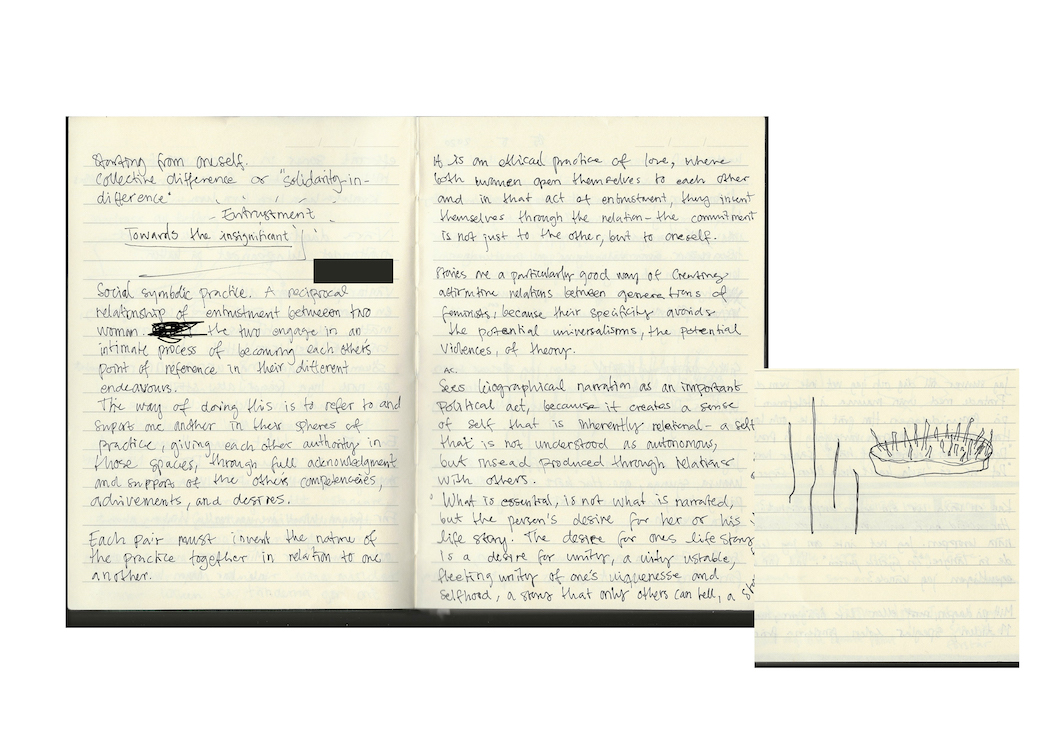 Starting from oneself.
Collective difference or "solidarity-in-
difference"
Entrustment
Towards the insignificant
Social symbolic practice. A reciprocal
relationship of entrustment between two
women. the two engage in an
intimate process of becoming each others
point of reference in their different
endeavours.
The way of doing this is to refer to and
suport one another in their spheres of
practice, giving each other authority in
those spaces, through full acknowledgment
and support of the others competencies,
achivements, and desires.
Each pair must invent the nature of
the practice together in relation to one
another.
It is an ethical practice of love, where
both women open themselves to each other
and in that act of entrustment, they invent
themselves through the relation – the commitment
is not just to the other, but to oneself.
Stories are a particularly good way of creating
affirmative relations between generations of
feminists, because their specificity avoids
the potential universalisms, the potential
violences, of theory.
AC.
Sees biographical narration as an important
political act, because it creates a sense
of self that is inherently relational – a self
that is not understood as autonomous,
but insead produced through relations
with others.
What is essential, is not what is narrated,
but the person's desire for her or his
life story. The desire for ones life story
is a desire for unity, a unity ustable,
fleeting unity of one's uiquenesse and
selfhood, a story that only others can tell, a